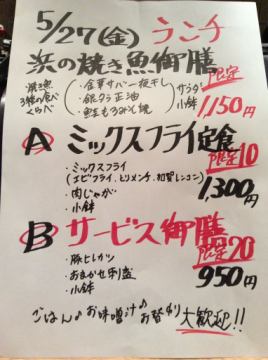 5/27(金) ランチ
浜の焼き魚御膳 限定
焼き魚 3種の食べくらべ
・金華サバ一夜干し
・銀ダラ正油
・鮭もろみそ焼
サラダ
小鉢
1,150円
A ミックスフライ定食 限定10
・ミックスフライ
(エビフライ、とりメンチ、加賀レンコン)
・肉じゃが
・小鉢
1,300円
B サービス御膳 限定20
・豚ヒレカツ
・おまかせ刺盛
・小鉢
950円
ごはん♪お味噌汁♪お替り大歓迎!!